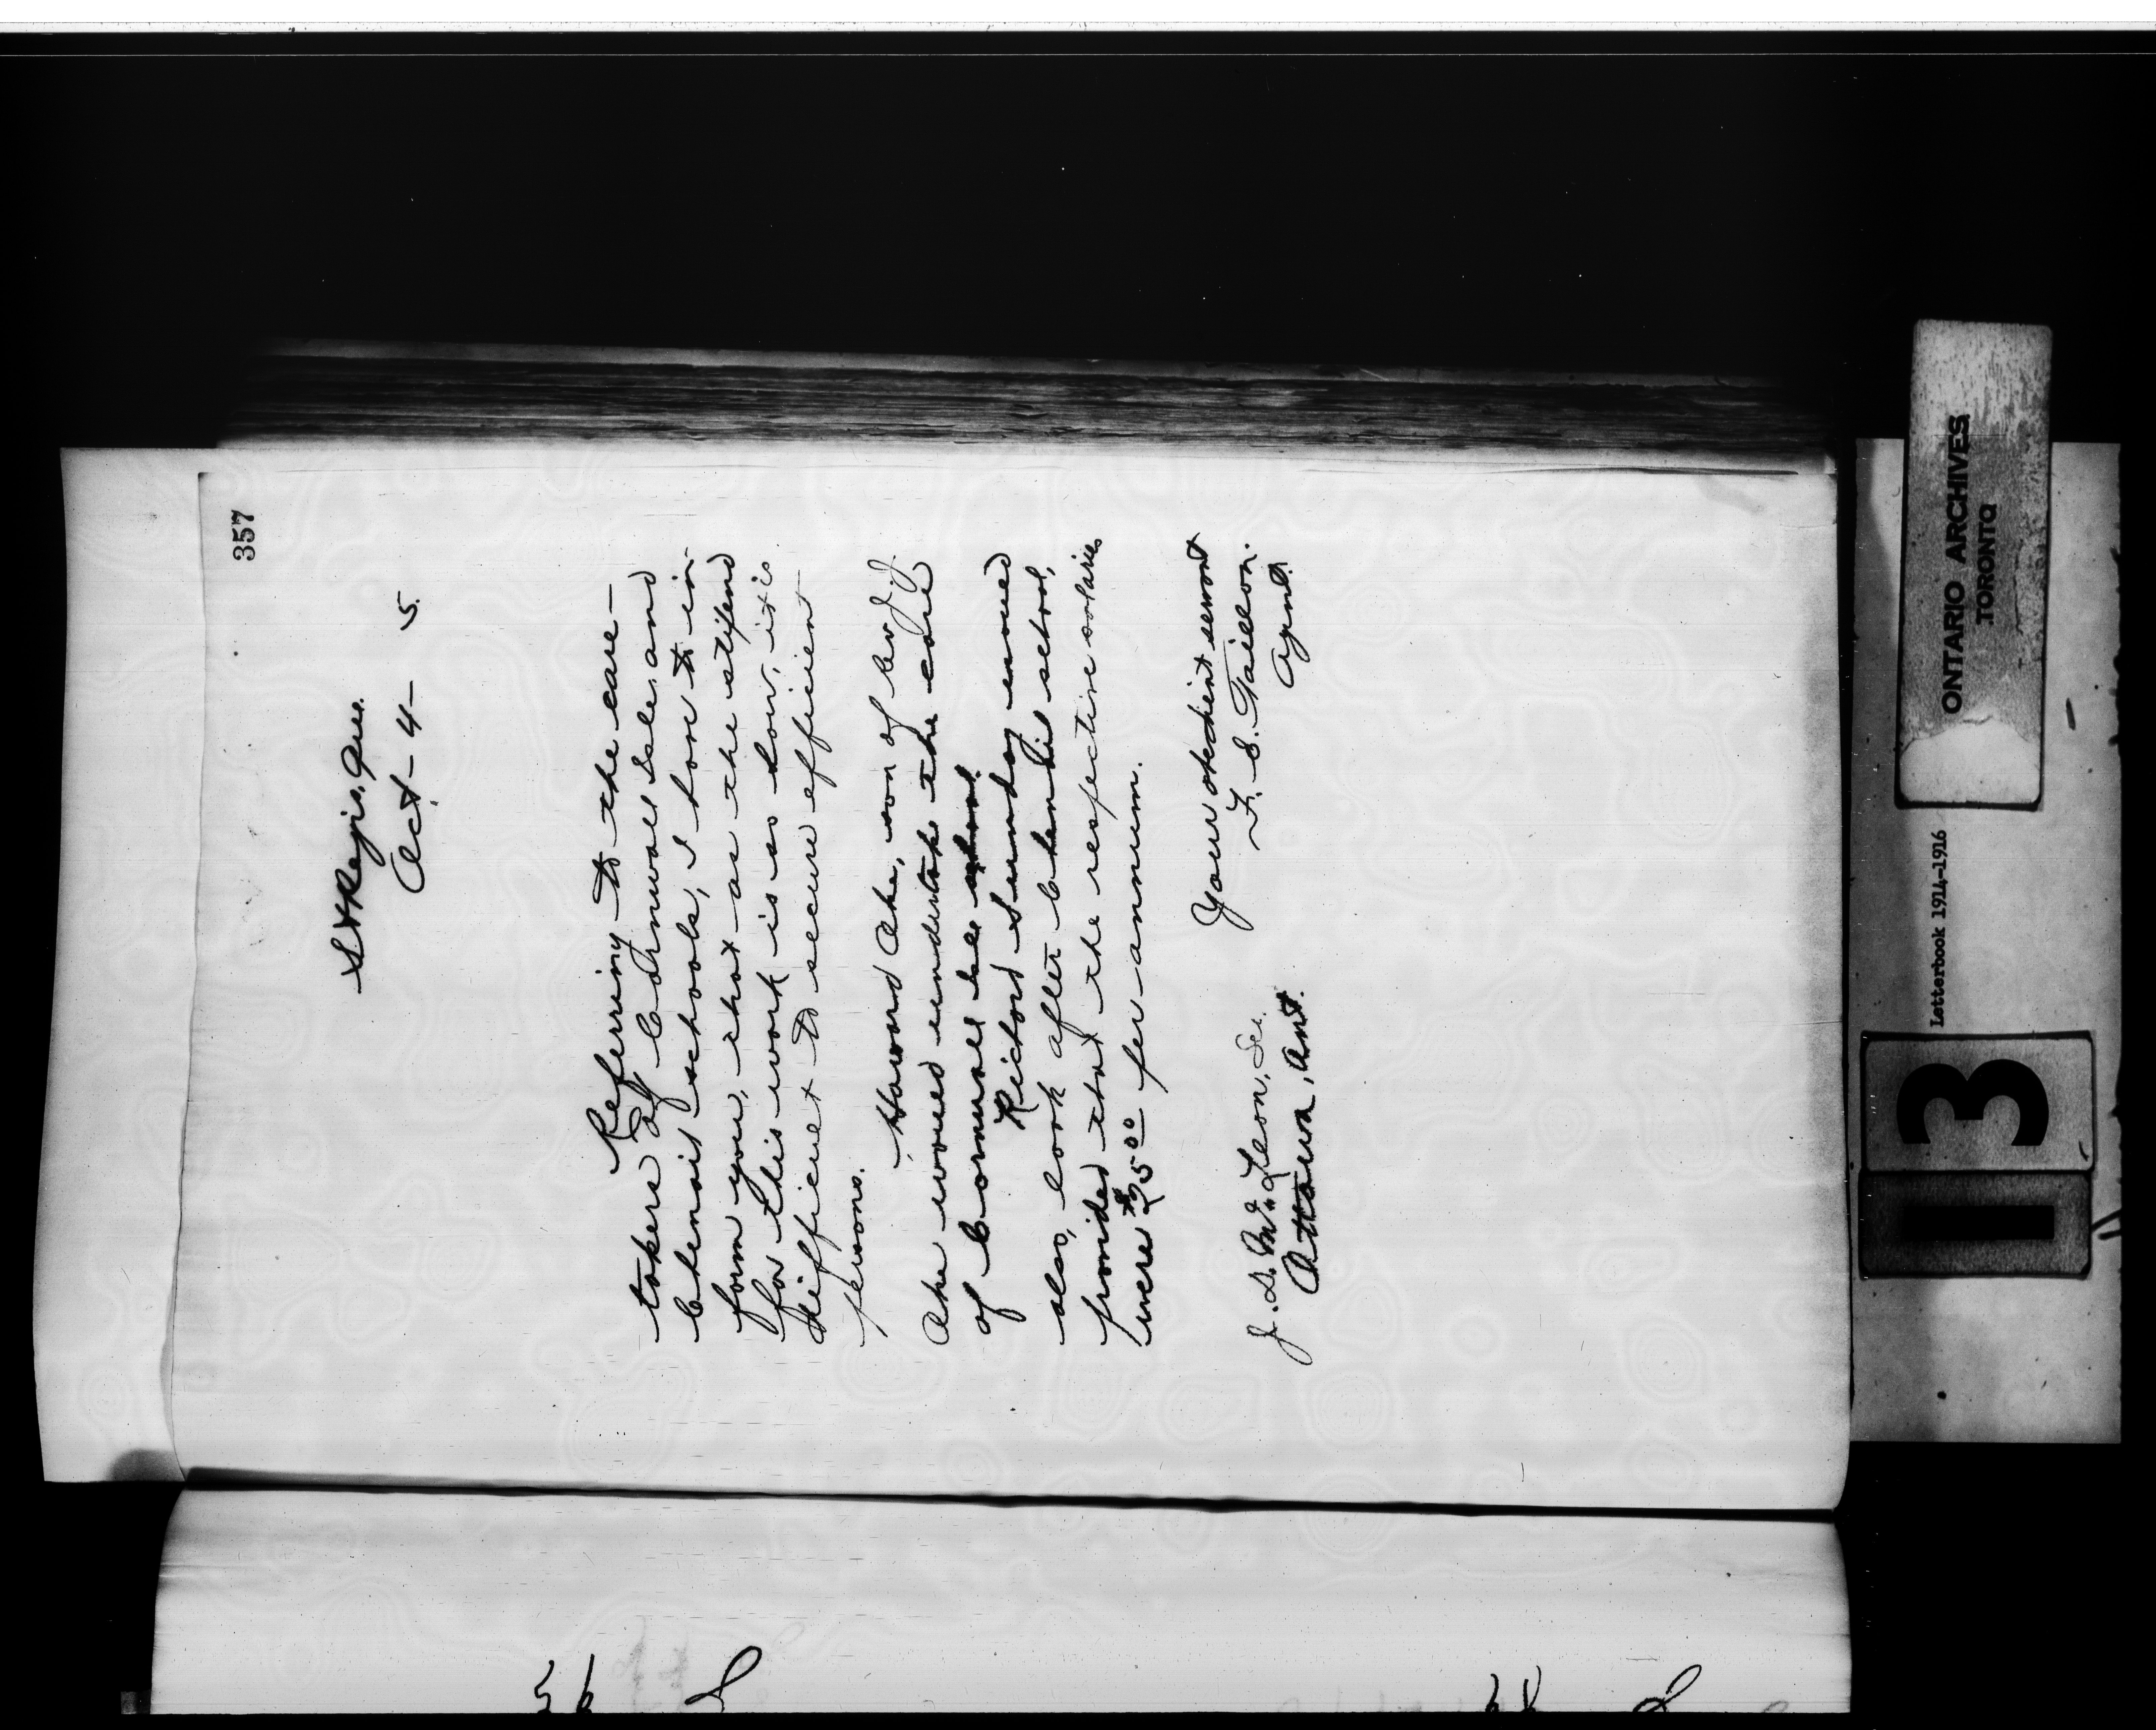 357
St Regis, Que.
Oct - 4 - 5.
Referring to the care-
takers of Cornwall Isle, and
Chenail schools, I have to in-
form you, that as the stipend
for this work is so low, it is
difficult to secure efficient
persons.
Howard Ake, son of J.
Ake would undertake the care
of Cornwall Isle school.
Richard Sunday would
also, look after Chenail school,
provided that the respective salaries
were $25.00 per annum.
Your obedient servant
F. E. Taillon.
Agent.
J. D. McLean, Sec.
Ottawa, Ont.
ONTARIO ARCHIVES
TORONTO
Letterbook 1914-1916
13